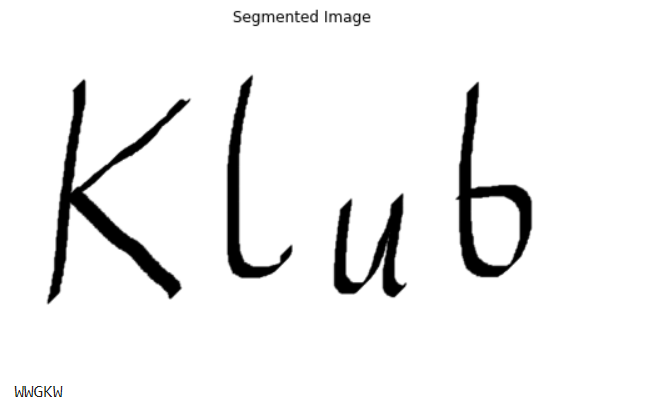 Segmented Image
Klub
WWGKW